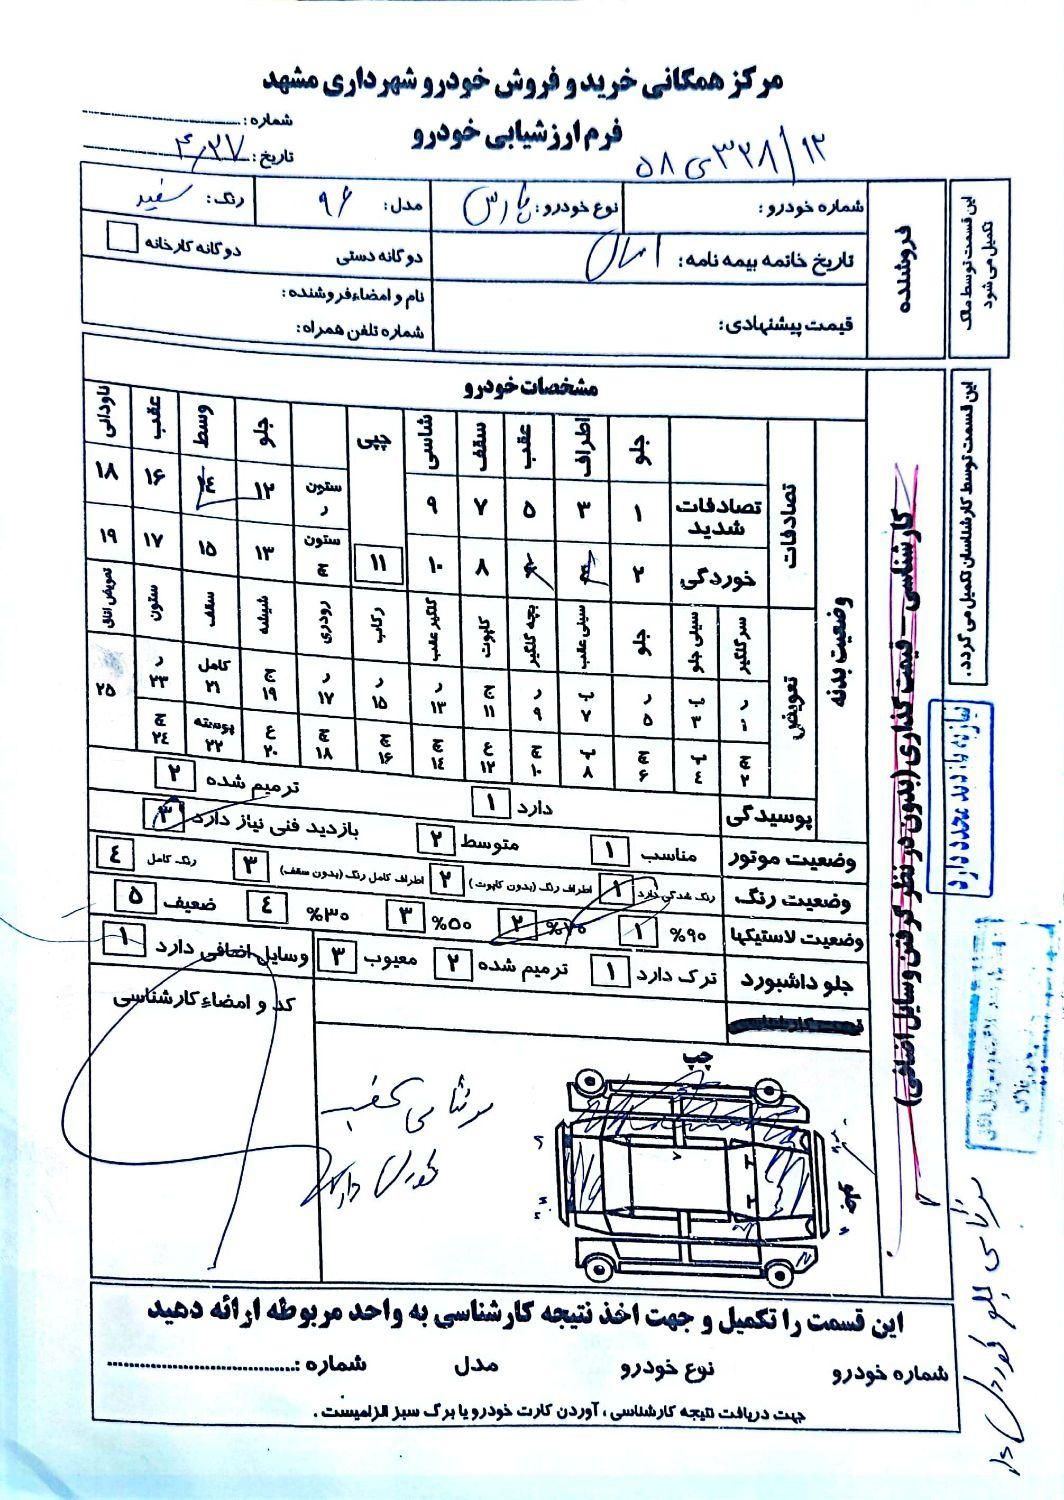 مرکز همگانی خرید و فروش خودرو شهرداری مشهد
فرم ارزشیابی خودرو
شماره :
تاریخ : ۴/۲۷
۵۸ ی ۳۳۸/۱۲
این قسمت توسط مالک تکمیل می شود
فروشنده
شماره خودرو :
نوع خودرو : پارس
مدل : ۹۶
رنگ : سفید
تاریخ خاتمه بیمه نامه : امسال
دوگانه دستی
دوگانه کارخانه
قیمت پیشنهادی :
نام و امضاء فروشنده :
شماره تلفن همراه :
این قسمت توسط کارشناسان تکمیل می گردد.
کارشناسی - قیمت گذاری (بدون در نظر گرفتن وسایل اضافی)
مشخصات خودرو
وضعیت بدنه
تصادفات
جلو اطراف عقب سقف شاسی چپی جلو وسط عقب ناودانی
تصادفات شدید ۱ ۳ ۵ ۷ ۹ ستون ر ۱۲ ۱۴ ۱۶ ۱۸
خوردگی ۲ ۴ ۶ ۸ ۱۰ ۱۱ ستون چ ۱۳ ۱۵ ۱۷ ۱۹
تعویض
سرگلگیر سینی جلو جلو سینی عقب بچه گلگیر کاپوت گلگیر عقب رکاب رودری شیشه سقف ستون تعویض اتاق
ر ۱ پ ۳ ر ۵ پ ۷ ر ۹ ج ۱۱ ر ۱۳ ر ۱۵ ر ۱۷ ج ۱۹ کامل ۲۱ ر ۲۳ ۲۵
چ ۲ پ ۴ چ ۶ پ ۸ چ ۱۰ ع ۱۲ چ ۱۴ چ ۱۶ چ ۱۸ ع ۲۰ پوسته ۲۲ چ ۲۴
پوسیدگی دارد ۱ ترمیم شده ۲
وضعیت موتور مناسب ۱ متوسط ۲ بازدید فنی نیاز دارد ۳
وضعیت رنگ رنگ شدگی دارد ۱ اطراف رنگ (بدون کاپوت) ۲ اطراف کامل رنگ (بدون سقف) ۳ رنگ کامل ۴
وضعیت لاستیکها ۹۰% ۱ ۷۰% ۲ ۵۰% ۳ ۳۰% ۴ ضعیف ۵
جلو داشبورد ترک دارد ۱ ترمیم شده ۲ معیوب ۳ وسایل اضافی دارد ۱
کد و امضاء کارشناسی
چپ
این قسمت را تکمیل و جهت اخذ نتیجه کارشناسی به واحد مربوطه ارائه دهید
شماره خودرو نوع خودرو مدل شماره :
جهت دریافت نتیجه کارشناسی ، آوردن کارت خودرو یا برگ سبز الزامیست .